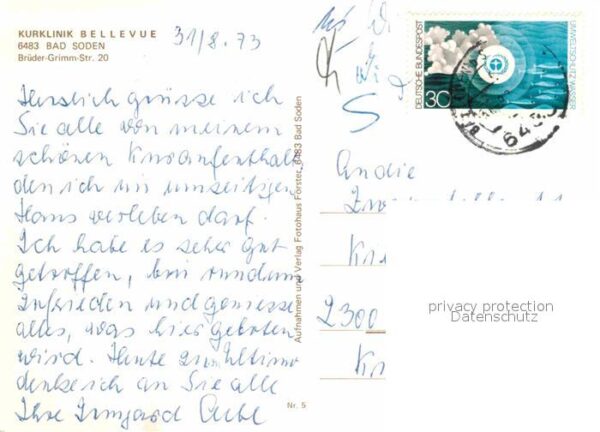 KURKLINIK BELLEVUE
6483 BAD SODEN
Brüder-Grimm-Str. 20
31/8.73
Herzlich grüsse ich
Sie alle von meinem
schönen Kuraufenthalt,
den ich im umseitigen
Haus verleben darf.
Ich habe es sehr gut
getroffen, bin rundum
zufrieden und geniesse
alles, was hier geboten
wird. Heute zum Ultimo
denke ich an Sie alle
Ihre Irmgard
Nr. 5
Aufnahmen und Verlag Fotohaus Förster, 6483 Bad Soden
DEUTSCHE BUNDESPOST
30
UMWELTSCHUTZ: WASSER
648
An die
2300
privacy protection
Datenschutz